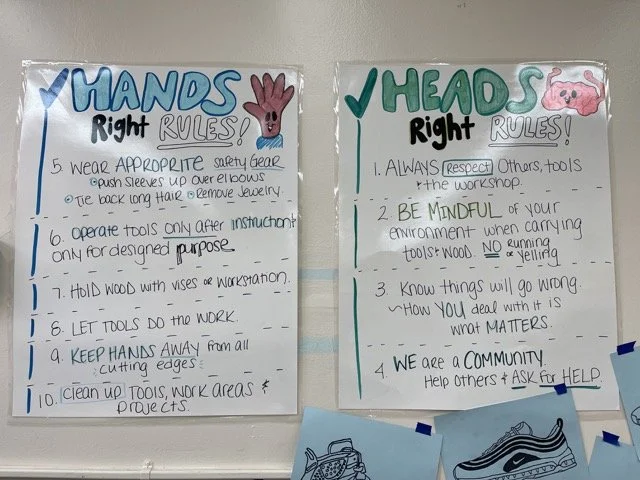 HANDS
Right RULES!
5. WEAR APPROPRITE SAFETY GEAR
Push Sleeves up over elbows
Tie back long Hair Remove Jewelry.
6. operate tools only after instruction
only for designed purpose
7. Hold wood with vises or workstation.
8. LET TOOLS DO THE WORK.
9. KEEP HANDS AWAY from all
cutting edges
10. Clean up TOOLS, WORK AREAS &
PROJECTS.
HEADS
Right RULES!
1. ALWAYS Respect Others, tools
+ the workshop.
2. BE MINDFUL of your
environment when carrying
tools + wood. NO Running
or yelling
3. Know things will go wrong.
~How YOU deal with it is
what MATTERS.
4. WE are a COMMUNITY.
Help others + ASK for HELP.